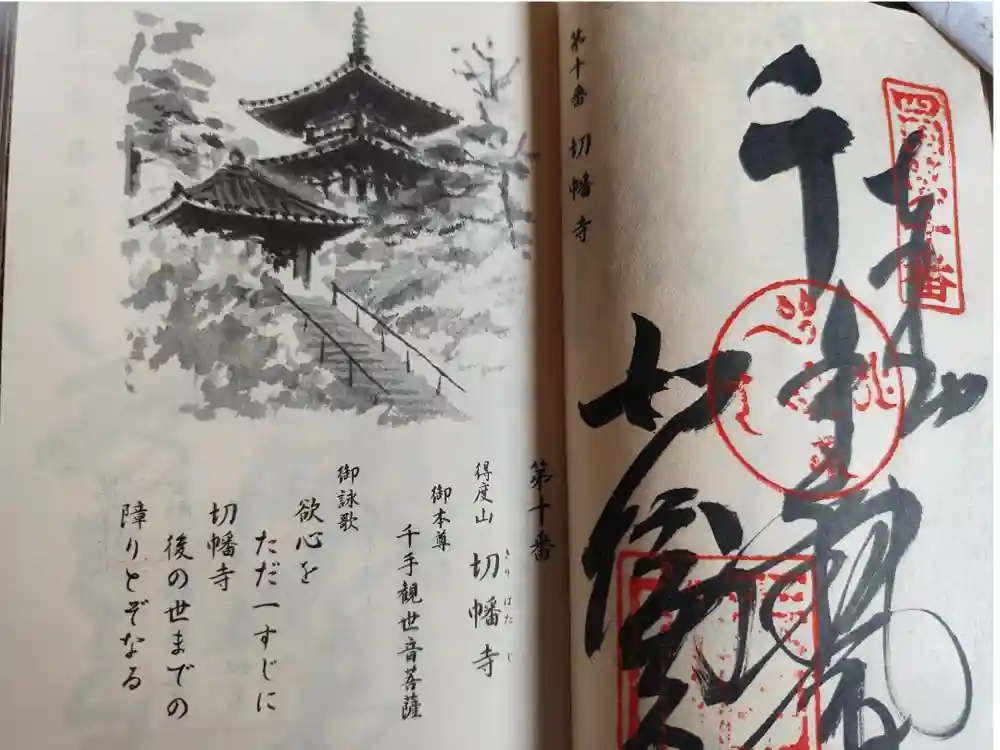 四国第十番
千手
切幡寺
第十番 切幡寺
第十番
得度山 切幡寺
きり はた じ
御本尊
千手観世音菩薩
御詠歌
欲心を
ただ一すじに
切幡寺
後の世までの
障りとぞなる